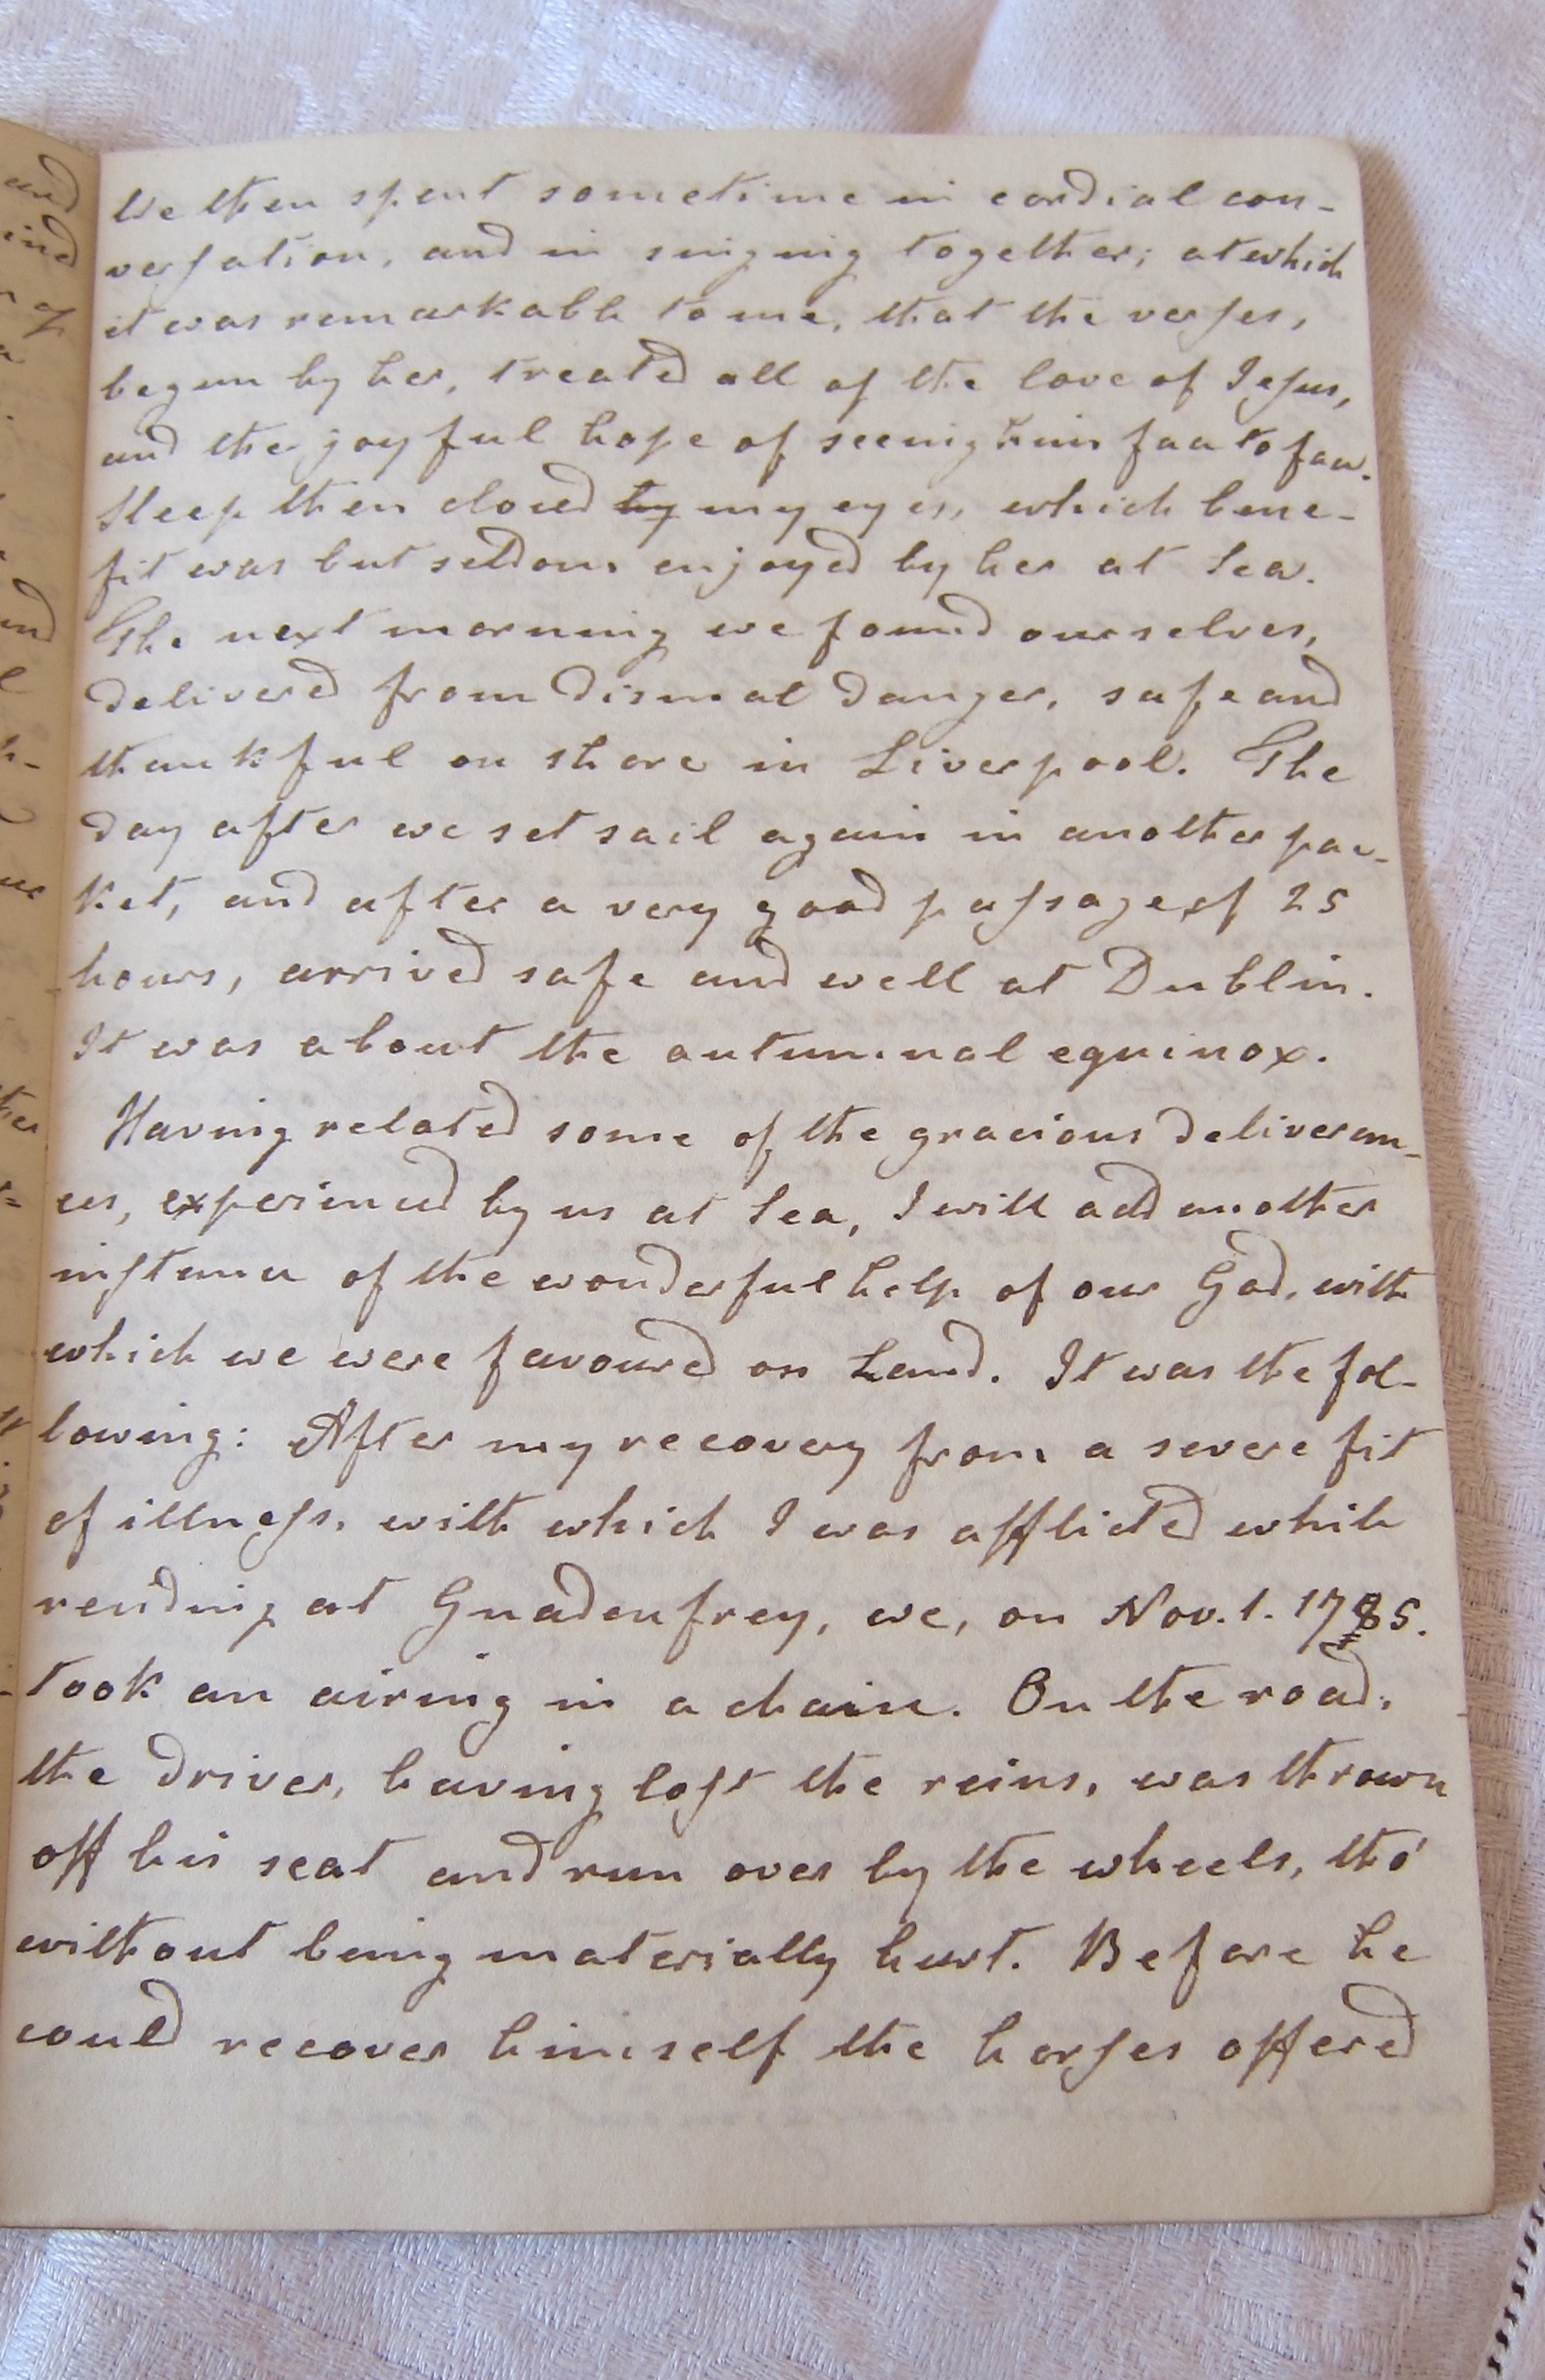 We then spent sometime in cordial con-
versation, and in singing together; at which
it was remarkable to me, that the verses,
begun by her, treated all of the love of Jesus,
and the joyful hope of seeing him face to face.
Sleep then closed by my eyes, which bene-
fit was but seldom enjoyed by her at Sea.
The next morning we found ourselves,
delivered from dismal danger, safe and
thankful on shore in Liverpool. The
day after we set sail again in another pac-
ket, and after a very good passage of 25
hours, arrived safe and well at Dublin.
It was about the autumnal equinox.
Having related some of the gracious deliveran-
ces, experienced by us at Sea, I will add another
instance of the wonderful help of our God, with
which we were favoured on Land. It was the fol-
lowing: After my recovery from a severe fit
of illness, with which I was afflicted while
residing at Gnadenfrey, we, on Nov. 1. 1785.
took an airing in a chaise. On the road,
the driver, having lost the reins, was thrown
off his seat and run over by the wheels, tho'
without being materially hurt. Before he
could recover himself the horses offered